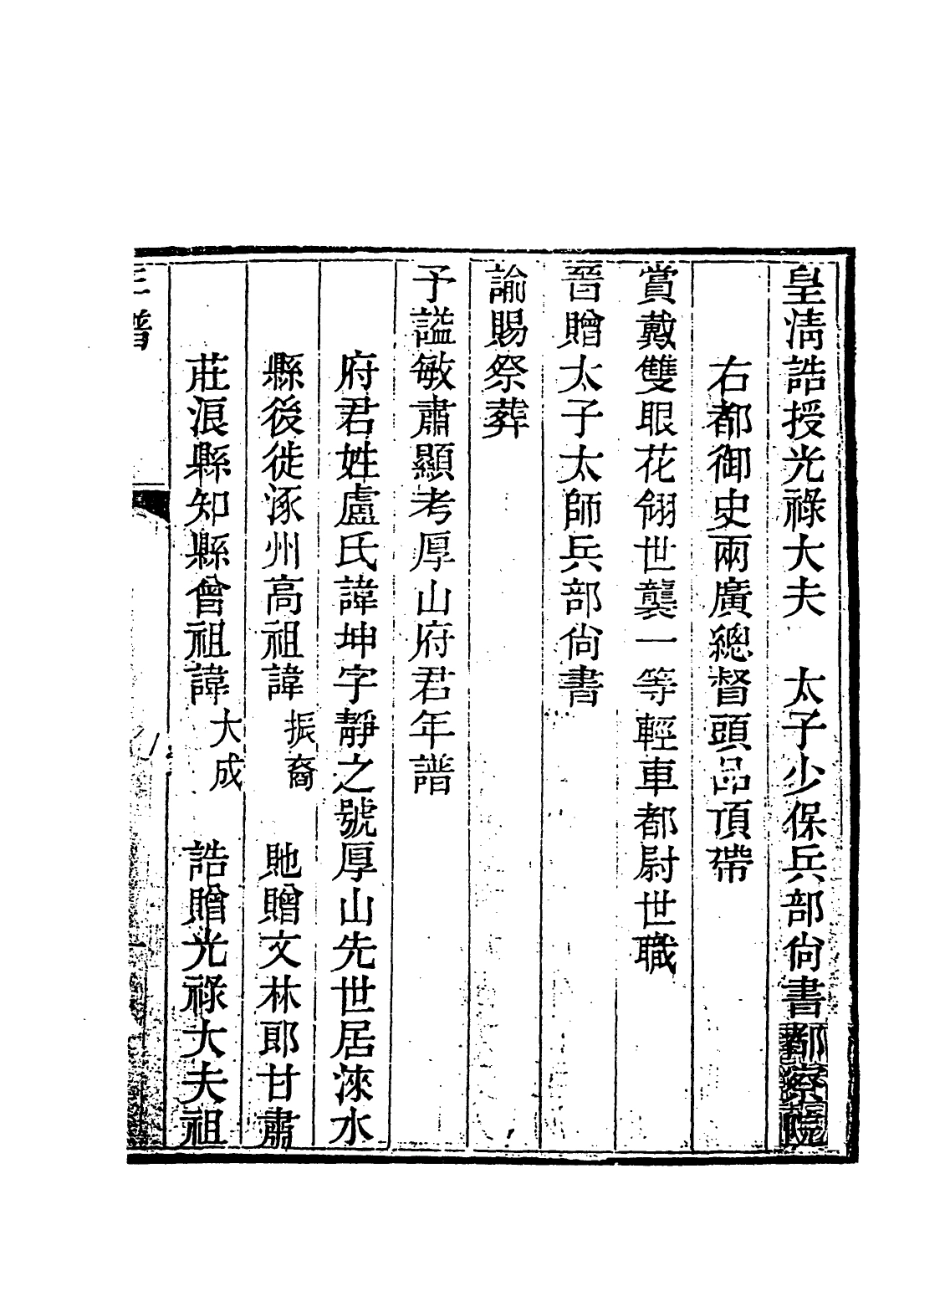 皇淸誥授光祿大夫　太子少保兵部尙書都察院
右都御史兩廣總督頭品頂帶
賞戴雙眼花翎世襲一等輕車都尉世職
晉贈太子太師兵部尙書
諭賜祭葬
予諡敏肅顯考厚山府君年譜
府君姓盧氏諱坤字靜之號厚山先世居淶水
縣後徙涿州高祖諱振裔　貤贈文林郎甘肅
莊浪縣知縣曾祖諱大成　誥贈光祿大夫祖
年譜